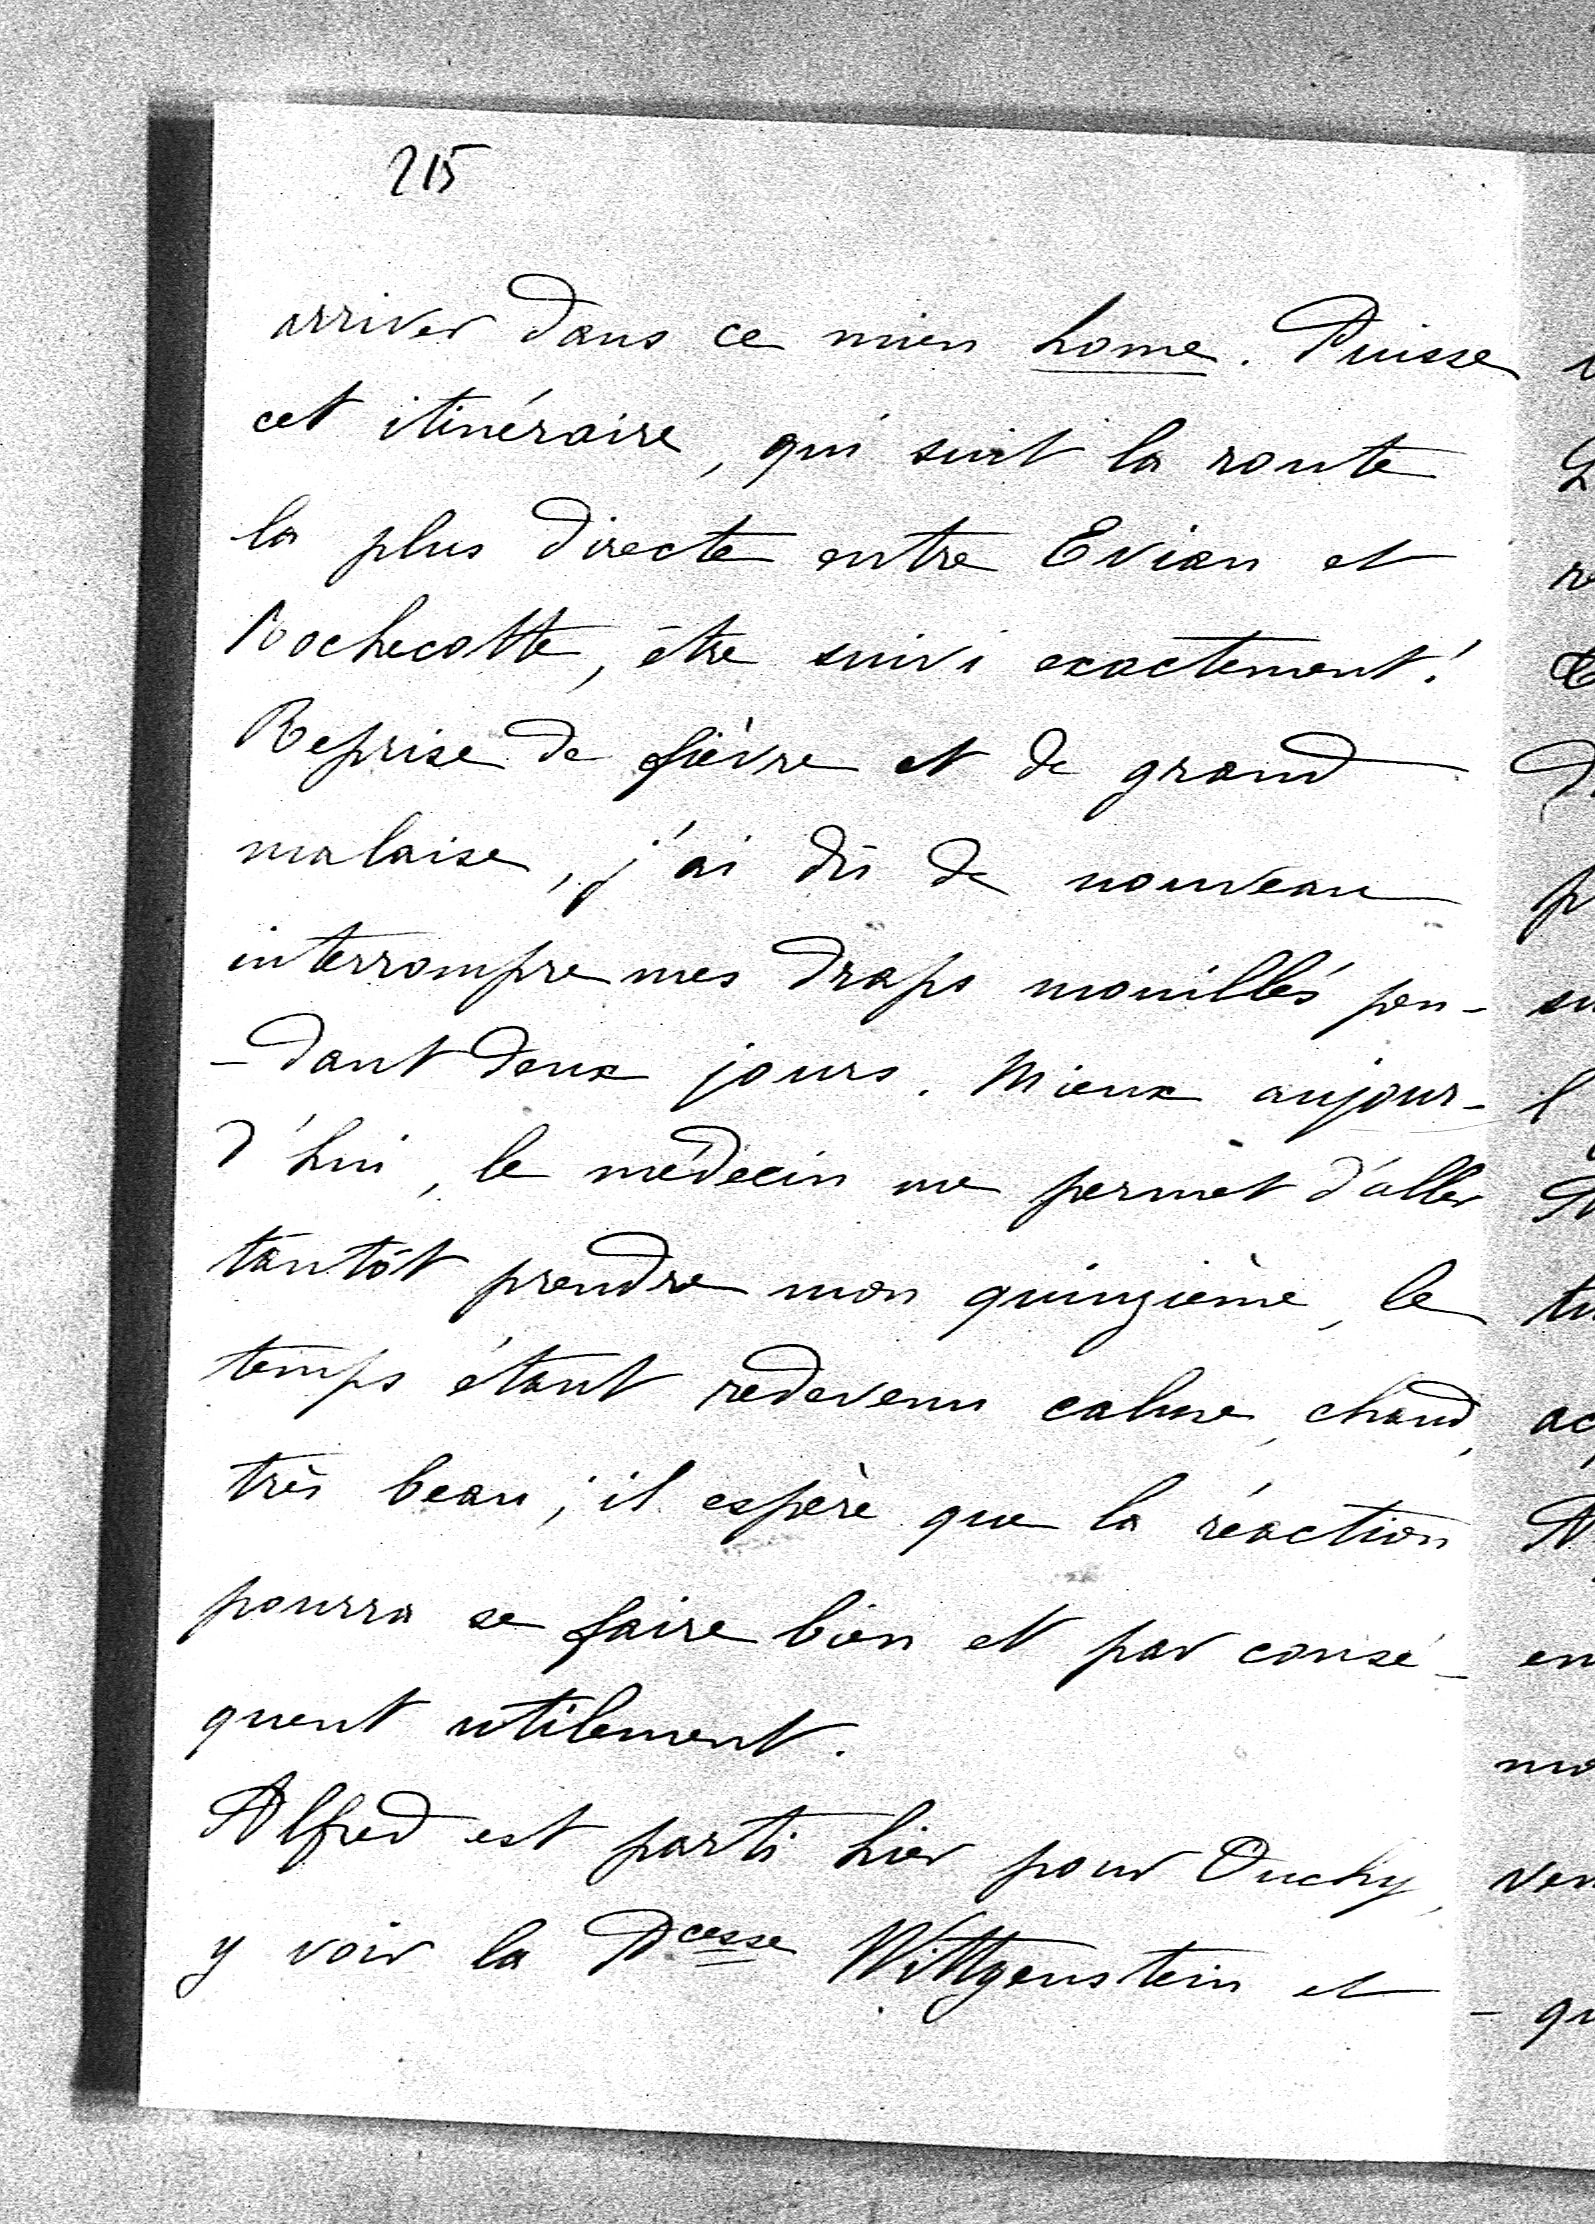 215
arriver dans ce mien home. Puisse
cet itinéraire, qui suit la route
la plus directe entre Evian et
Rochecotte, être suivi exactement !
Reprise de fièvre et de grand
malaise, j'ai dû de nouveau
interrompre mes draps mouillés pen-
-dant deux jours. Mieux aujour-
d'hui, le médecin me permet d'aller
tantôt prendre mon quinzième, le
temps étant redevenu calme, chaud,
très beau ; il espère que la réaction
pourra se faire bien et par consé-
quent utilement.
Alfred est parti hier pour Ouchy,
y voir la Pcesse Wittgenstein et